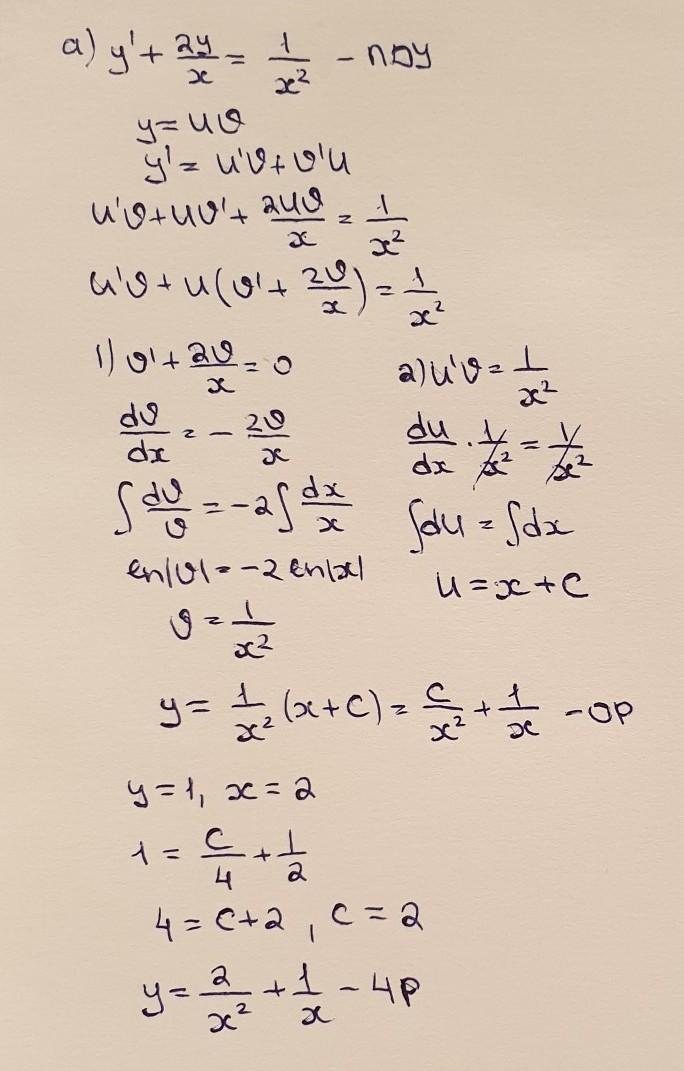 а) y' + 2y/x = 1/x² - ЛДУ
y = uv
y' = u'v + v'u
u'v + uv' + 2uv/x = 1/x²
u'v + u(v' + 2v/x) = 1/x²
1) v' + 2v/x = 0
dv/dx = - 2v/x
∫ dv/v = -2 ∫ dx/x
ln|v| = -2 ln|x|
v = 1/x²
2) u'v = 1/x²
du/dx · 1/x² = 1/x²
∫du = ∫dx
u = x + C
y = 1/x² (x + C) = C/x² + 1/x - ОР
y = 1, x = 2
1 = C/4 + 1/2
4 = C + 2, C = 2
y = 2/x² + 1/x - ЧР